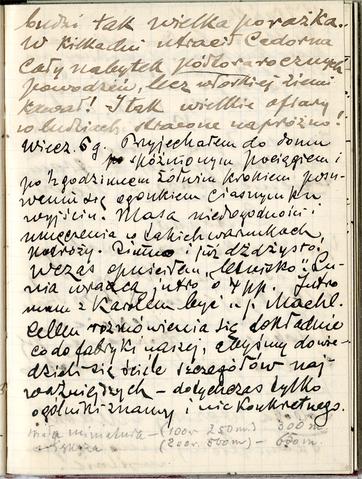 budzi tak wielka porażka.
W kilka dni utracił Cadorna
cały nabytek półtorarocznych
powodzeń, lecz włoskiej ziemi
kawał! I tak wielkie ofiary
w ludziach stracone napróżno!
Wiecz. 6 g. Przyjechałem do domu
spóźnionym pociągiem i
po ½ godzinnem żółwim krokiem posu-
waniu się ogonkiem ciasnym ku
wyjściu. Masa niedogodności i
umęczenia w takich warunkach
podróży. Zimno i już dżdżysto.
Wczas opuściłem "letnisko". Lu-
nia wraca jutro o 4 pp. Jutro
mam z Karolem być u p. Machl.
celem rozmówienia się dokładnie
co do fabryki naszej, abyśmy dowie-
dzieli się ściśle szczegółów naj
ważniejszych – dotychczas tylko
ogólniki znamy i nic konkretnego.
mała minatura – (100r. 250m.) 300 m.
większa (200r. 500m) – 600 m.